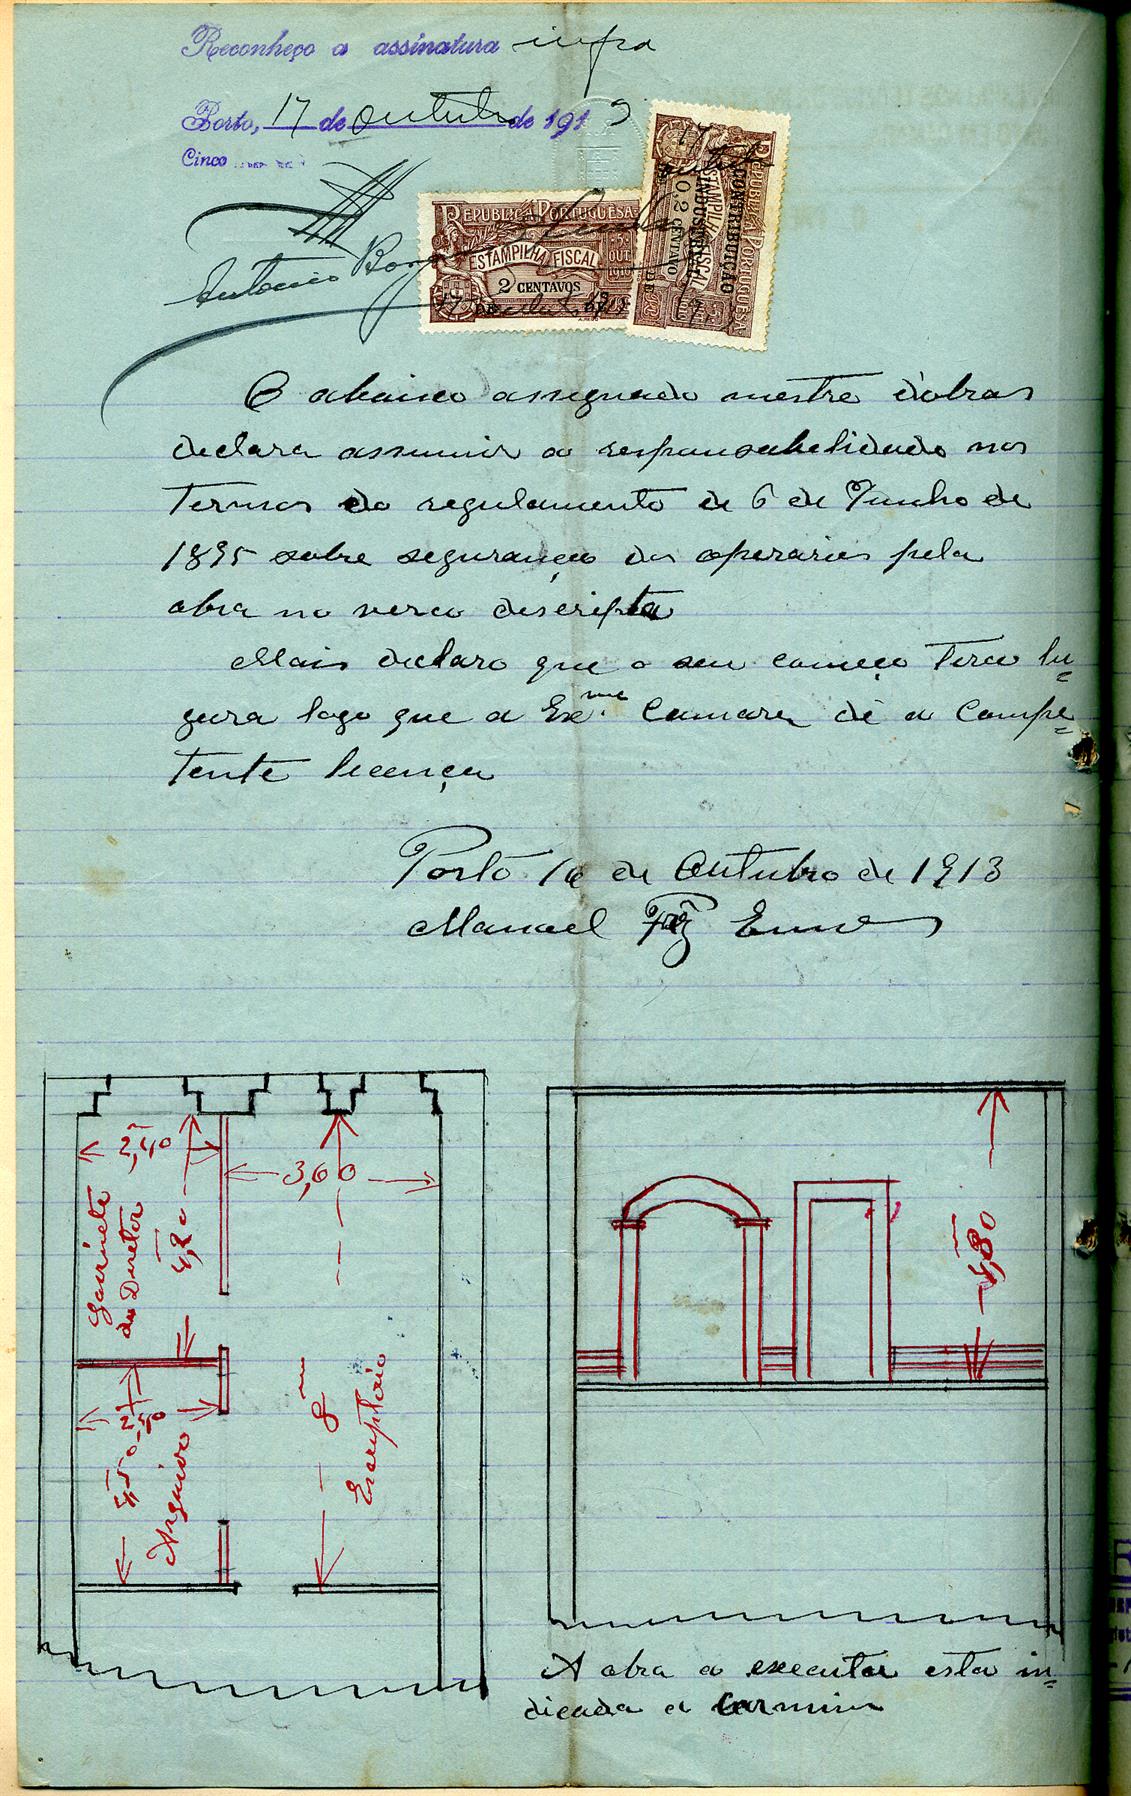 Reconheço a assinatura infra
Porto, 17 de outubro de 191
Cinco
Antonio
REPUBLICA PORTUGUESA
ESTAMPILHA FISCAL
2 CENTAVOS
5 OUT 1910
REPUBLICA PORTUGUESA
CONTRIBUIÇÃO
INDUSTRIAL
ESTAMPILHA FISCAL
0,2 CENTAVO
O abaixo assegnado mestre d'obras
declara assumir a responsabelidade nos
termos do regulamento de 6 de Junho de
1895 sobre segurança dos operarios pela
obra no verso descripta
Mais declaro que o seu começo terá lu-
gara logo que a Exme. Camara dê a Compe-
tente licença
Porto 16 de Outubro de 1913
Manuel
2,40
3,60
Gabinete
do Diretor
4,80
2,40
4,50
Arquivo
8m
Escriptorio
4,80
A obra a executar esta in-
dicada a Carmim